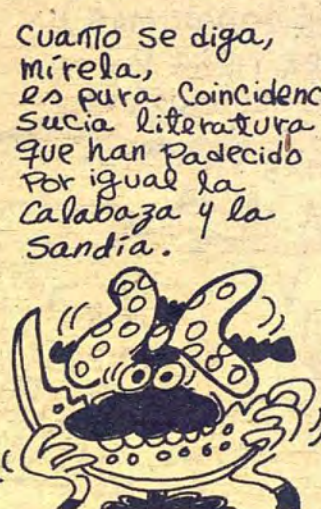 Cuanto se diga,
mírela,
es pura Coincidenc
Sucia literatura
que han Padecido
Por igual la
Calabaza y la
Sandía.